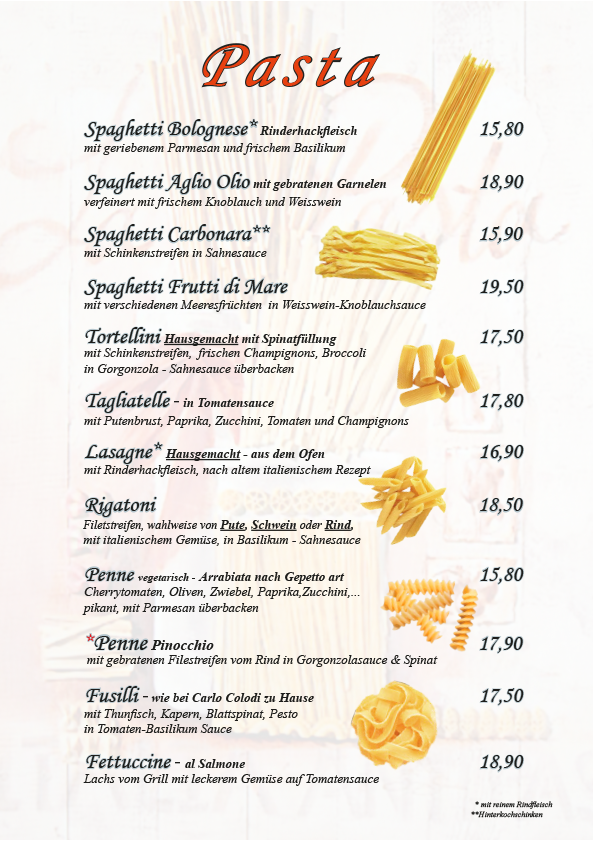 Pasta
Spaghetti Bolognese* Rinderhackfleisch 15,80
mit geriebenem Parmesan und frischem Basilikum
Spaghetti Aglio Olio mit gebratenen Garnelen 18,90
verfeinert mit frischem Knoblauch und Weisswein
Spaghetti Carbonara** 15,90
mit Schinkenstreifen in Sahnesauce
Spaghetti Frutti di Mare 19,50
mit verschiedenen Meeresfrüchten in Weisswein-Knoblauchsauce
Tortellini Hausgemacht mit Spinatfüllung 17,50
mit Schinkenstreifen, frischen Champignons, Broccoli
in Gorgonzola - Sahnesauce überbacken
Tagliatelle - in Tomatensauce 17,80
mit Putenbrust, Paprika, Zucchini, Tomaten und Champignons
Lasagne* Hausgemacht - aus dem Ofen 16,90
mit Rinderhackfleisch, nach altem italienischem Rezept
Rigatoni 18,50
Filetstreifen, wahlweise von Pute, Schwein oder Rind,
mit italienischem Gemüse, in Basilikum - Sahnesauce
Penne vegetarisch - Arrabiata nach Gepetto art 15,80
Cherrytomaten, Oliven, Zwiebel, Paprika,Zucchini,...
pikant, mit Parmesan überbacken
*Penne Pinocchio 17,90
mit gebratenen Filestreifen vom Rind in Gorgonzolasauce & Spinat
Fusilli - wie bei Carlo Colodi zu Hause 17,50
mit Thunfisch, Kapern, Blattspinat, Pesto
in Tomaten-Basilikum Sauce
Fettuccine - al Salmone 18,90
Lachs vom Grill mit leckerem Gemüse auf Tomatensauce
* mit reinem Rindfleisch
**Hinterkochschinken